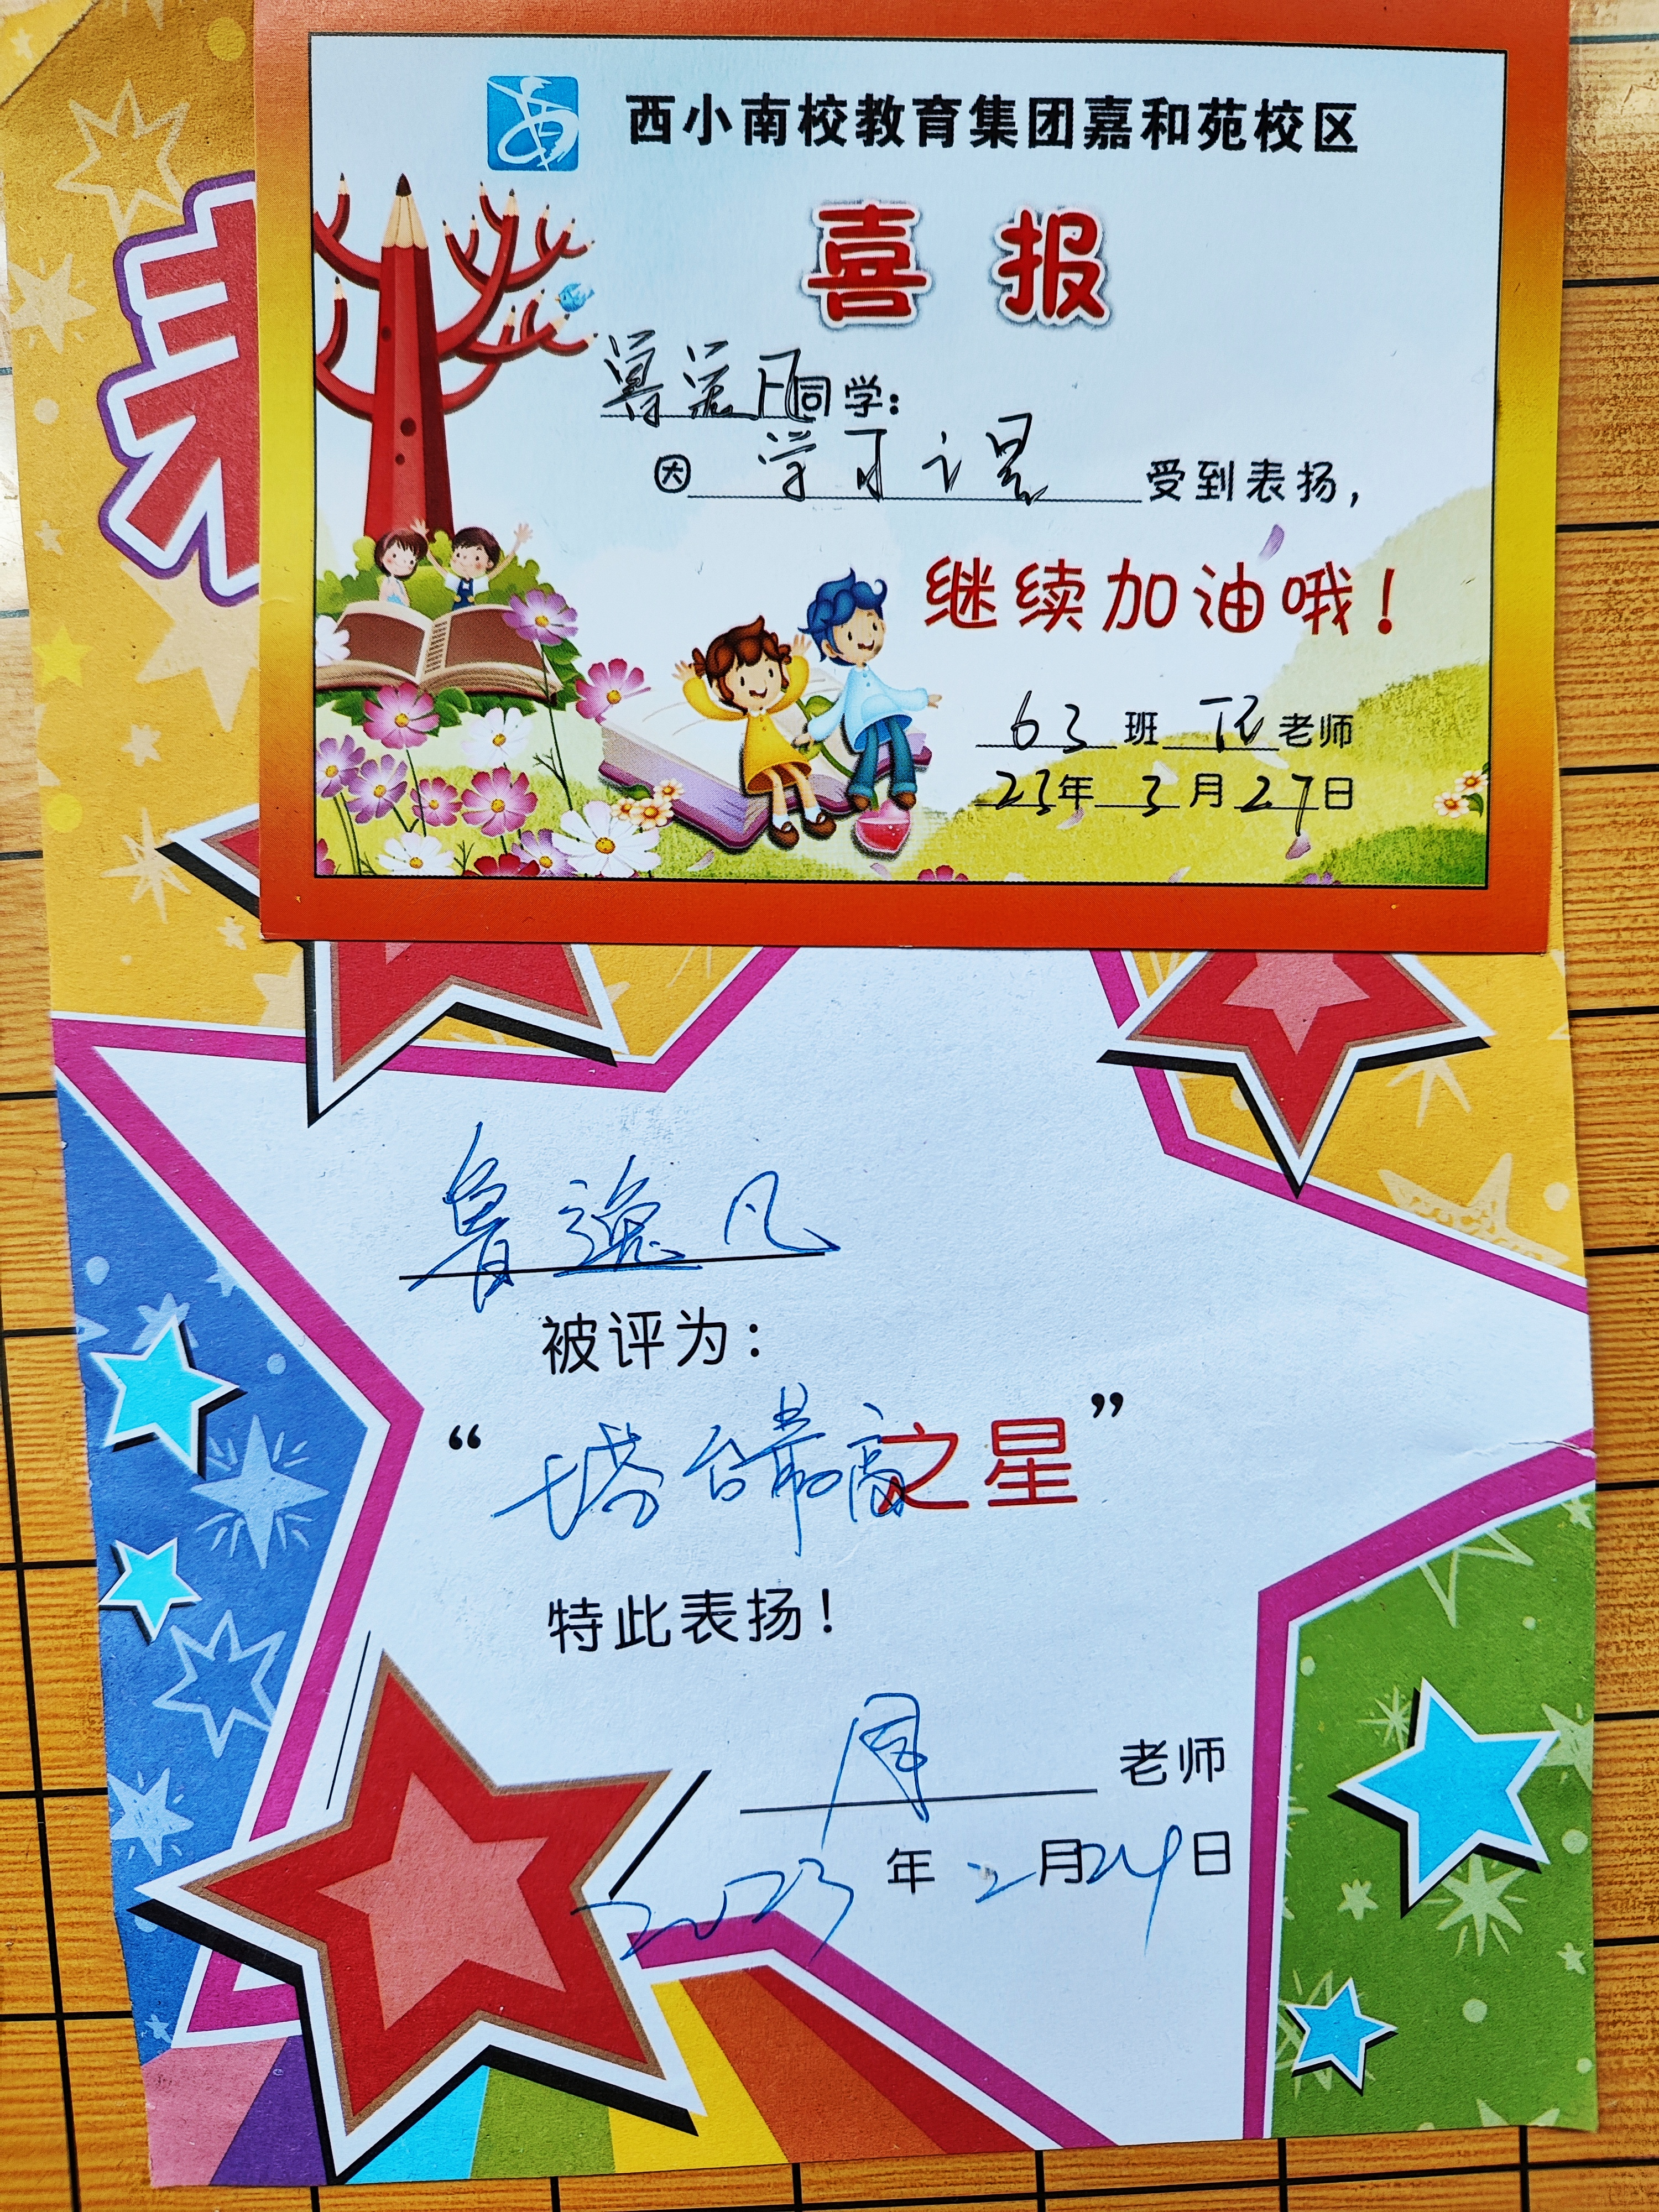 西小南校教育集团嘉和苑校区
喜报
同学:
因 学习 受到表扬,
继续加油哦!
63班 老师
23年3月27日
表
鲁逸凡
被评为:
“搭台最高之星”
特此表扬!
周 老师
2023年2月24日